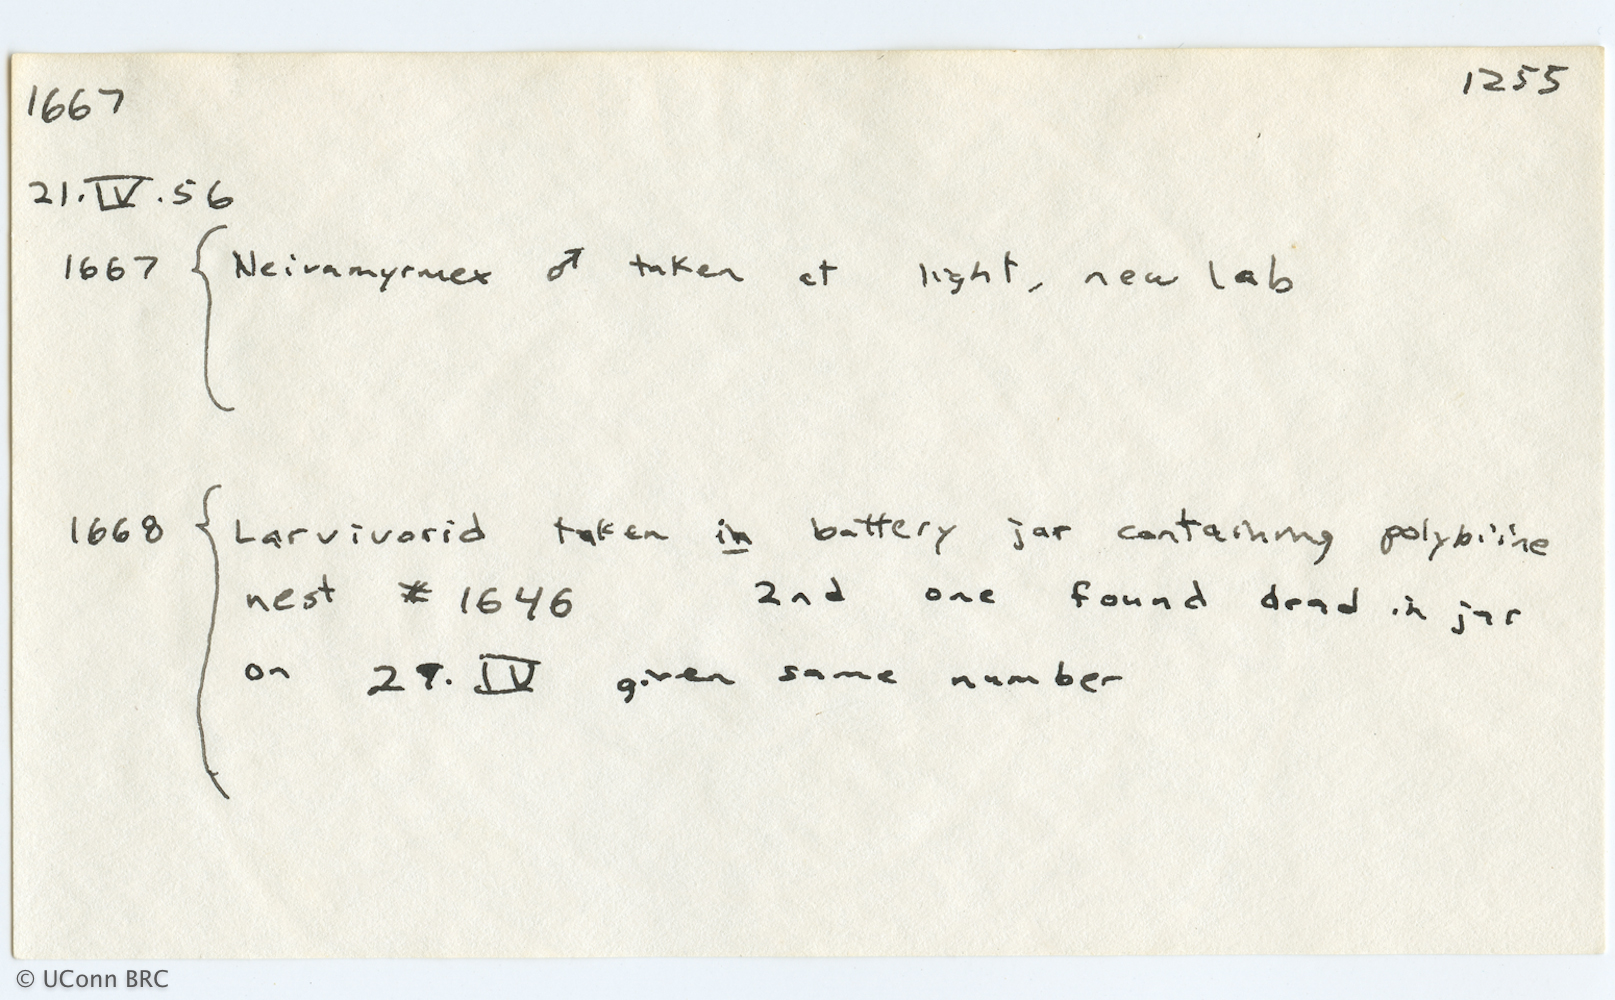 1667
1255
21.IV.56
1667 { Neivamyrmex ♂ taken at light, new lab
1668 { Larvivorid taken in battery jar containing polybiine
nest # 1646 2nd one found dead in jar
on 29.IV given same number
© UConn BRC